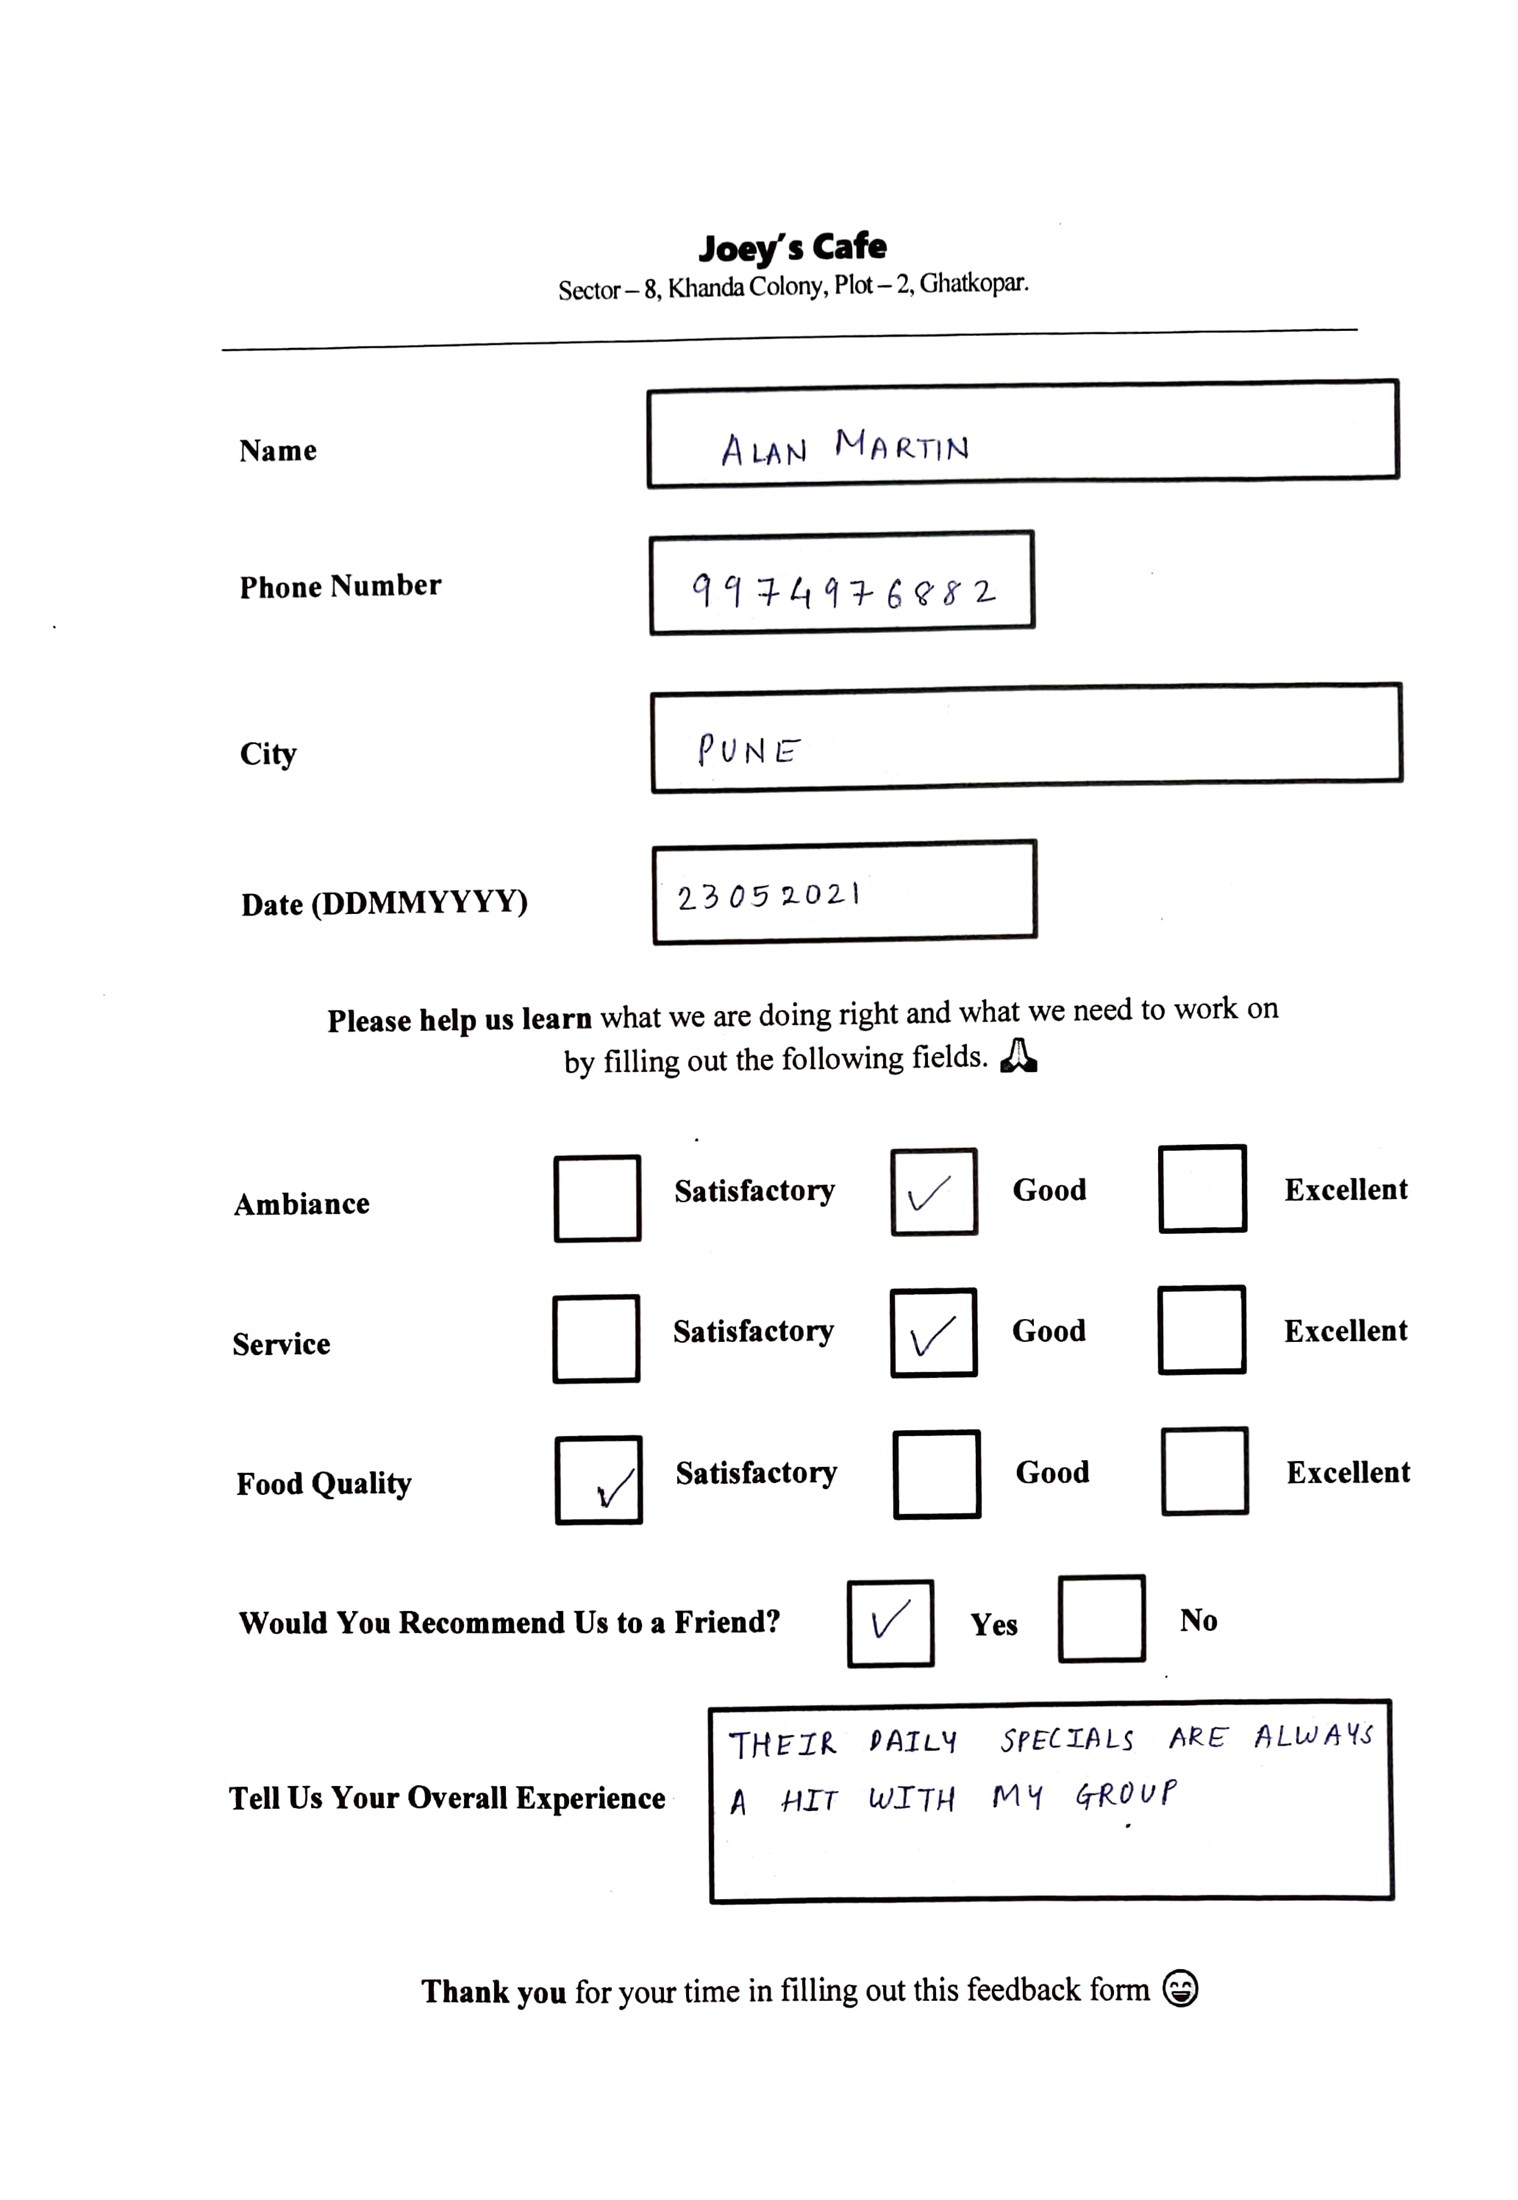 Joey's Cafe
Sector – 8, Khanda Colony, Plot – 2, Ghatkopar.
Name
ALAN MARTIN
Phone Number
9974976882
City
PUNE
Date (DDMMYYYY)
23052021
Please help us learn what we are doing right and what we need to work on
by filling out the following fields. 🙏
Ambiance Satisfactory ✓ Good Excellent
Service Satisfactory ✓ Good Excellent
Food Quality ✓ Satisfactory Good Excellent
Would You Recommend Us to a Friend? ✓ Yes No
Tell Us Your Overall Experience
THEIR DAILY SPECIALS ARE ALWAYS
A HIT WITH MY GROUP
Thank you for your time in filling out this feedback form 😄